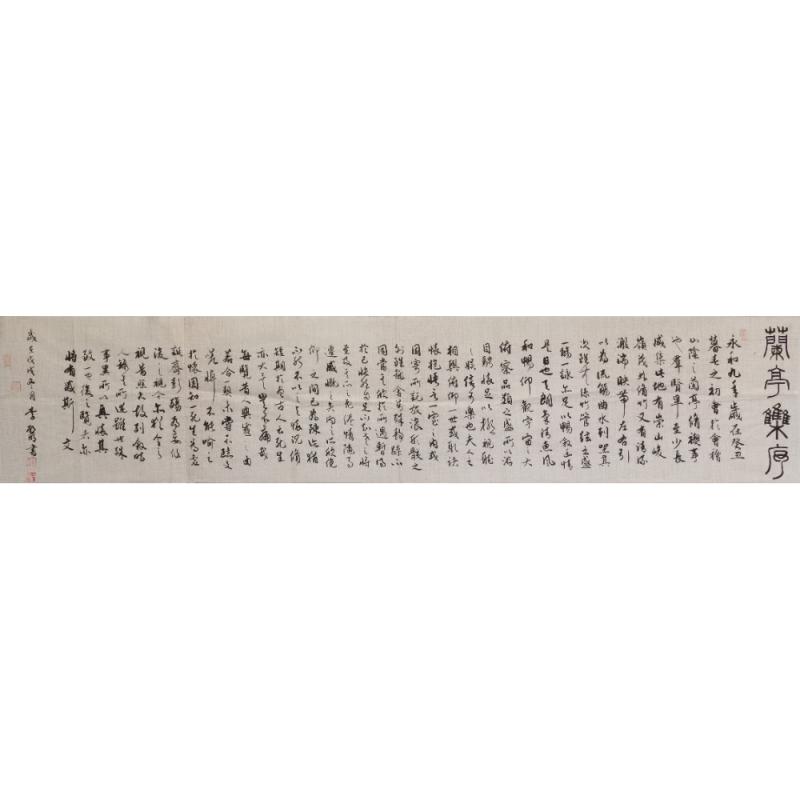 蘭亭集序
永和九年歲在癸丑
暮春之初會於會稽
山陰之蘭亭脩禊事
也羣賢畢至少長
咸集此地有崇山峻
嶺茂林脩竹又有清流
激湍映帶左右引
以為流觴曲水列坐其
次雖無絲竹管絃之盛
一觴一詠亦足以暢敘幽情
是日也天朗氣清惠風
和暢仰觀宇宙之大
俯察品類之盛所以游
目騁懷足以極視聽
之娛信可樂也夫人之
相與俯仰一世或取諸
懷抱悟言一室之內或
因寄所託放浪形骸之
外雖趣舍萬殊靜躁不
同當其欣於所遇暫得
於己快然自足不知老之將
至及其所之既倦情隨事
遷感慨係之矣向之所欣俛
仰之間已為陳迹猶
不能不以之興懷況脩
短隨化終期於盡古人云死生
亦大矣豈不痛哉
每覽昔人興感之由
若合一契未嘗不臨文
嗟悼不能喻之
於懷固知一死生為虛
誕齊彭殤為妄作
後之視今亦猶今之
視昔悲夫故列敘時
人錄其所述雖世殊
事異所以興懷其
致一也後之覽者亦
將有感斯文
歲在戊
月李
書